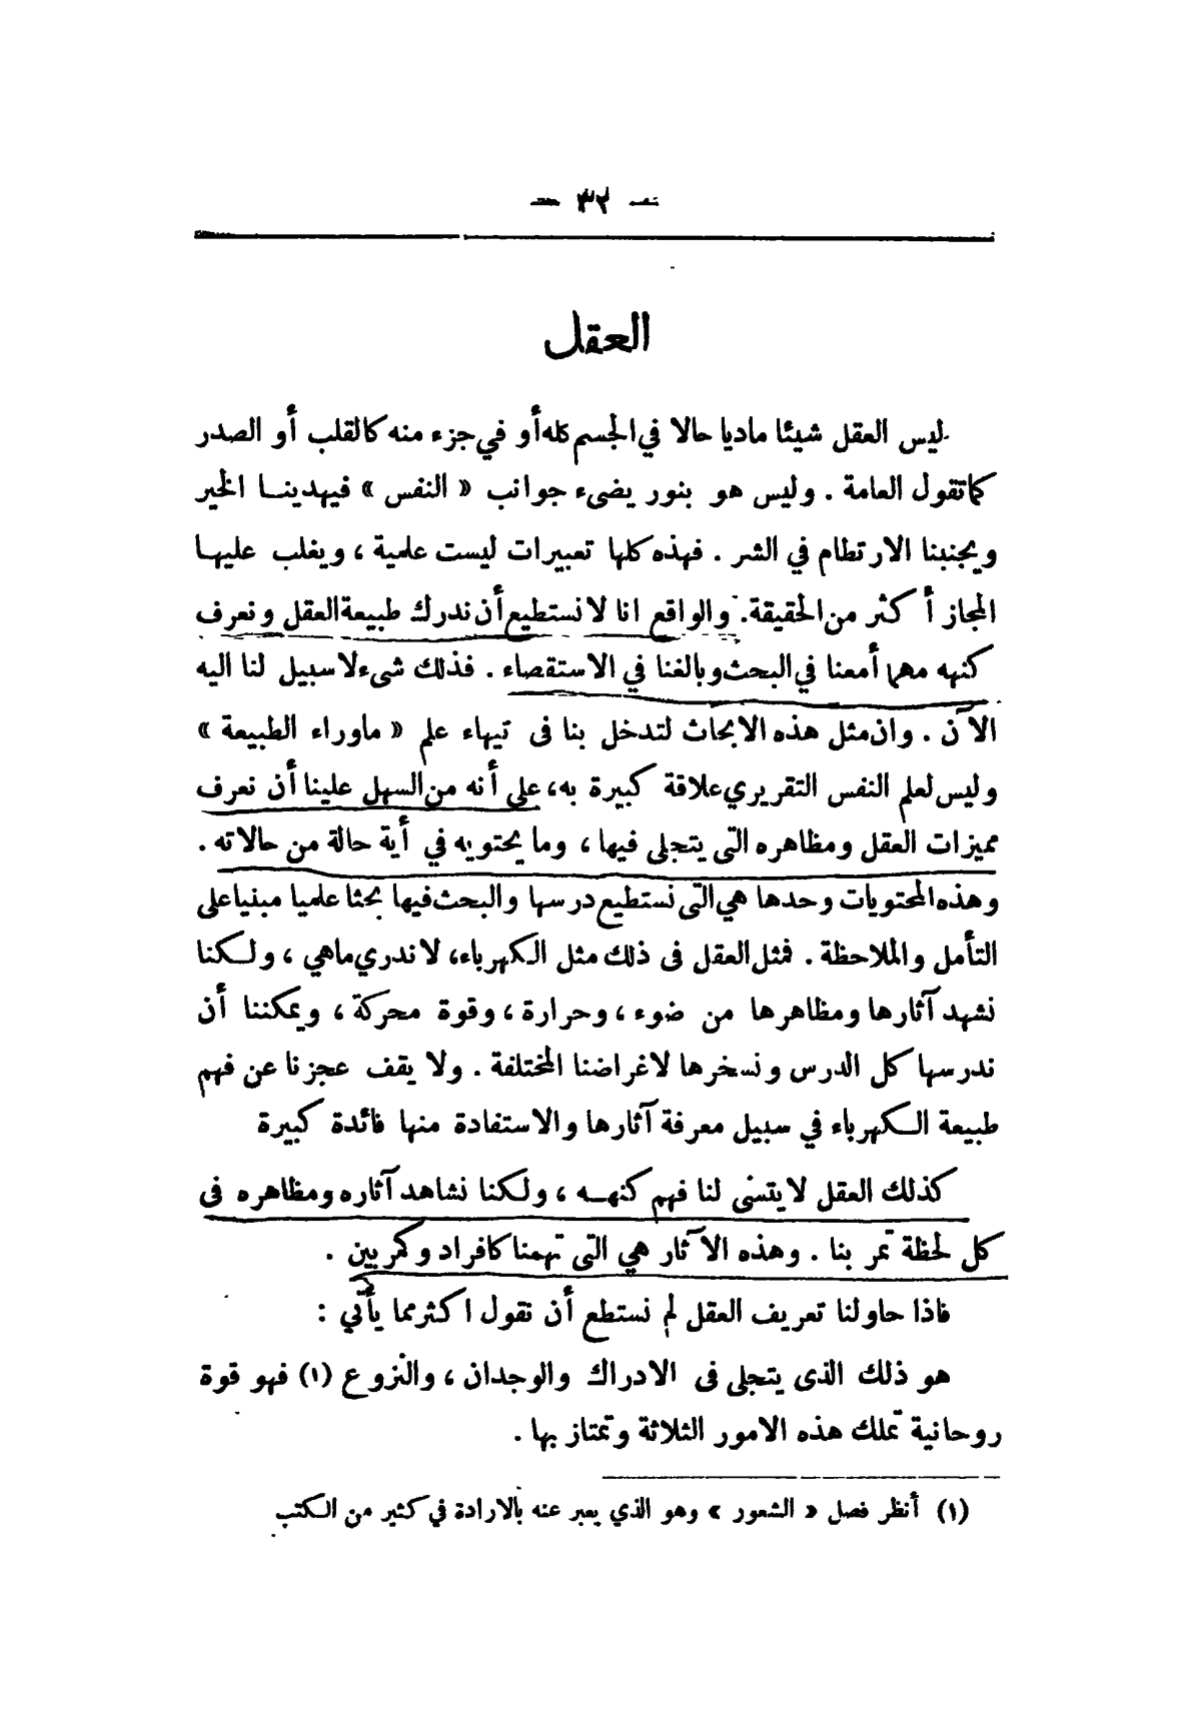 — ٣٢ —
العقل
ليس العقل شيئا ماديا حالا في الجسم كله أو في جزء منه كالقلب أو الصدر
كما تقول العامة . وليس هو بنور يضىء جوانب « النفس » فيهدينا الخير
ويجنبنا الارتطام في الشر . فهذه كلها تعبيرات ليست علمية ، ويغلب عليها
المجاز أكثر من الحقيقة. والواقع انا لا نستطيع أن ندرك طبيعة العقل ونعرف
كنهه مهما أمعنا في البحث وبالغنا في الاستقصاء . فذلك شىء لا سبيل لنا اليه
الآن . وان مثل هذه الابحاث لتدخل بنا فى تيهاء علم « ماوراء الطبيعة »
وليس لعلم النفس التقريري علاقة كبيرة به، على أنه من السهل علينا أن نعرف
مميزات العقل ومظاهره التى يتجلى فيها ، وما يحتويه في أية حالة من حالاته .
وهذه المحتويات وحدها هي التى نستطيع درسها والبحث فيها بحثا علميا مبنيا على
التأمل والملاحظة . فمثل العقل فى ذلك مثل الكهرباء، لا ندري ماهي ، ولكنا
نشهد آثارها ومظاهرها من ضوء ، وحرارة ، وقوة محركة ، ويمكننا أن
ندرسها كل الدرس ونسخرها لاغراضنا المختلفة . ولا يقف عجزنا عن فهم
طبيعة الكهرباء في سبيل معرفة آثارها والاستفادة منها فائدة كبيرة
كذلك العقل لا يتسنى لنا فهم كنهه ، ولكنا نشاهد آثاره ومظاهره فى
كل لحظة تمر بنا . وهذه الآثار هي التى تهمنا كافراد وكمربين .
فاذا حاولنا تعريف العقل لم نستطع أن نقول اكثر مما يأتي :
هو ذلك الذى يتجلى فى الادراك والوجدان ، والنزوع (١) فهو قوة
روحانية تملك هذه الامور الثلاثة وتمتاز بها .
(١) أنظر فصل « الشعور » وهو الذي يعبر عنه بالارادة في كثير من الكتب